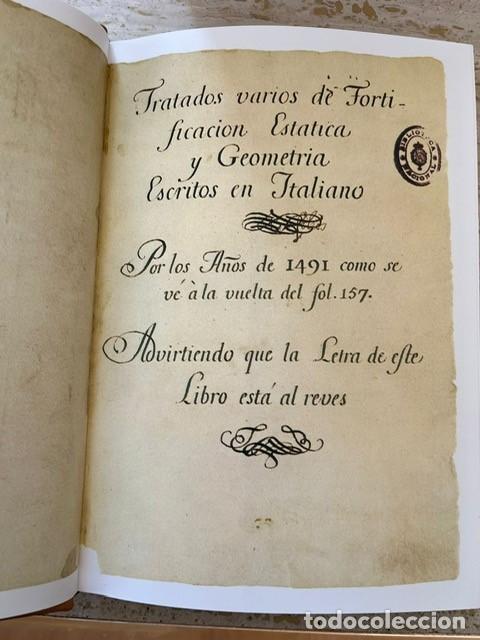 Tratados varios de Forti-
ficacion Estatica
y Geometria
Escritos en Italiano
BIBLIOTECA NACIONAL
Por los Años de 1491 como se
vé à la vuelta del fol. 157.
Advirtiendo que la Letra de este
Libro está al reves
todocoleccion